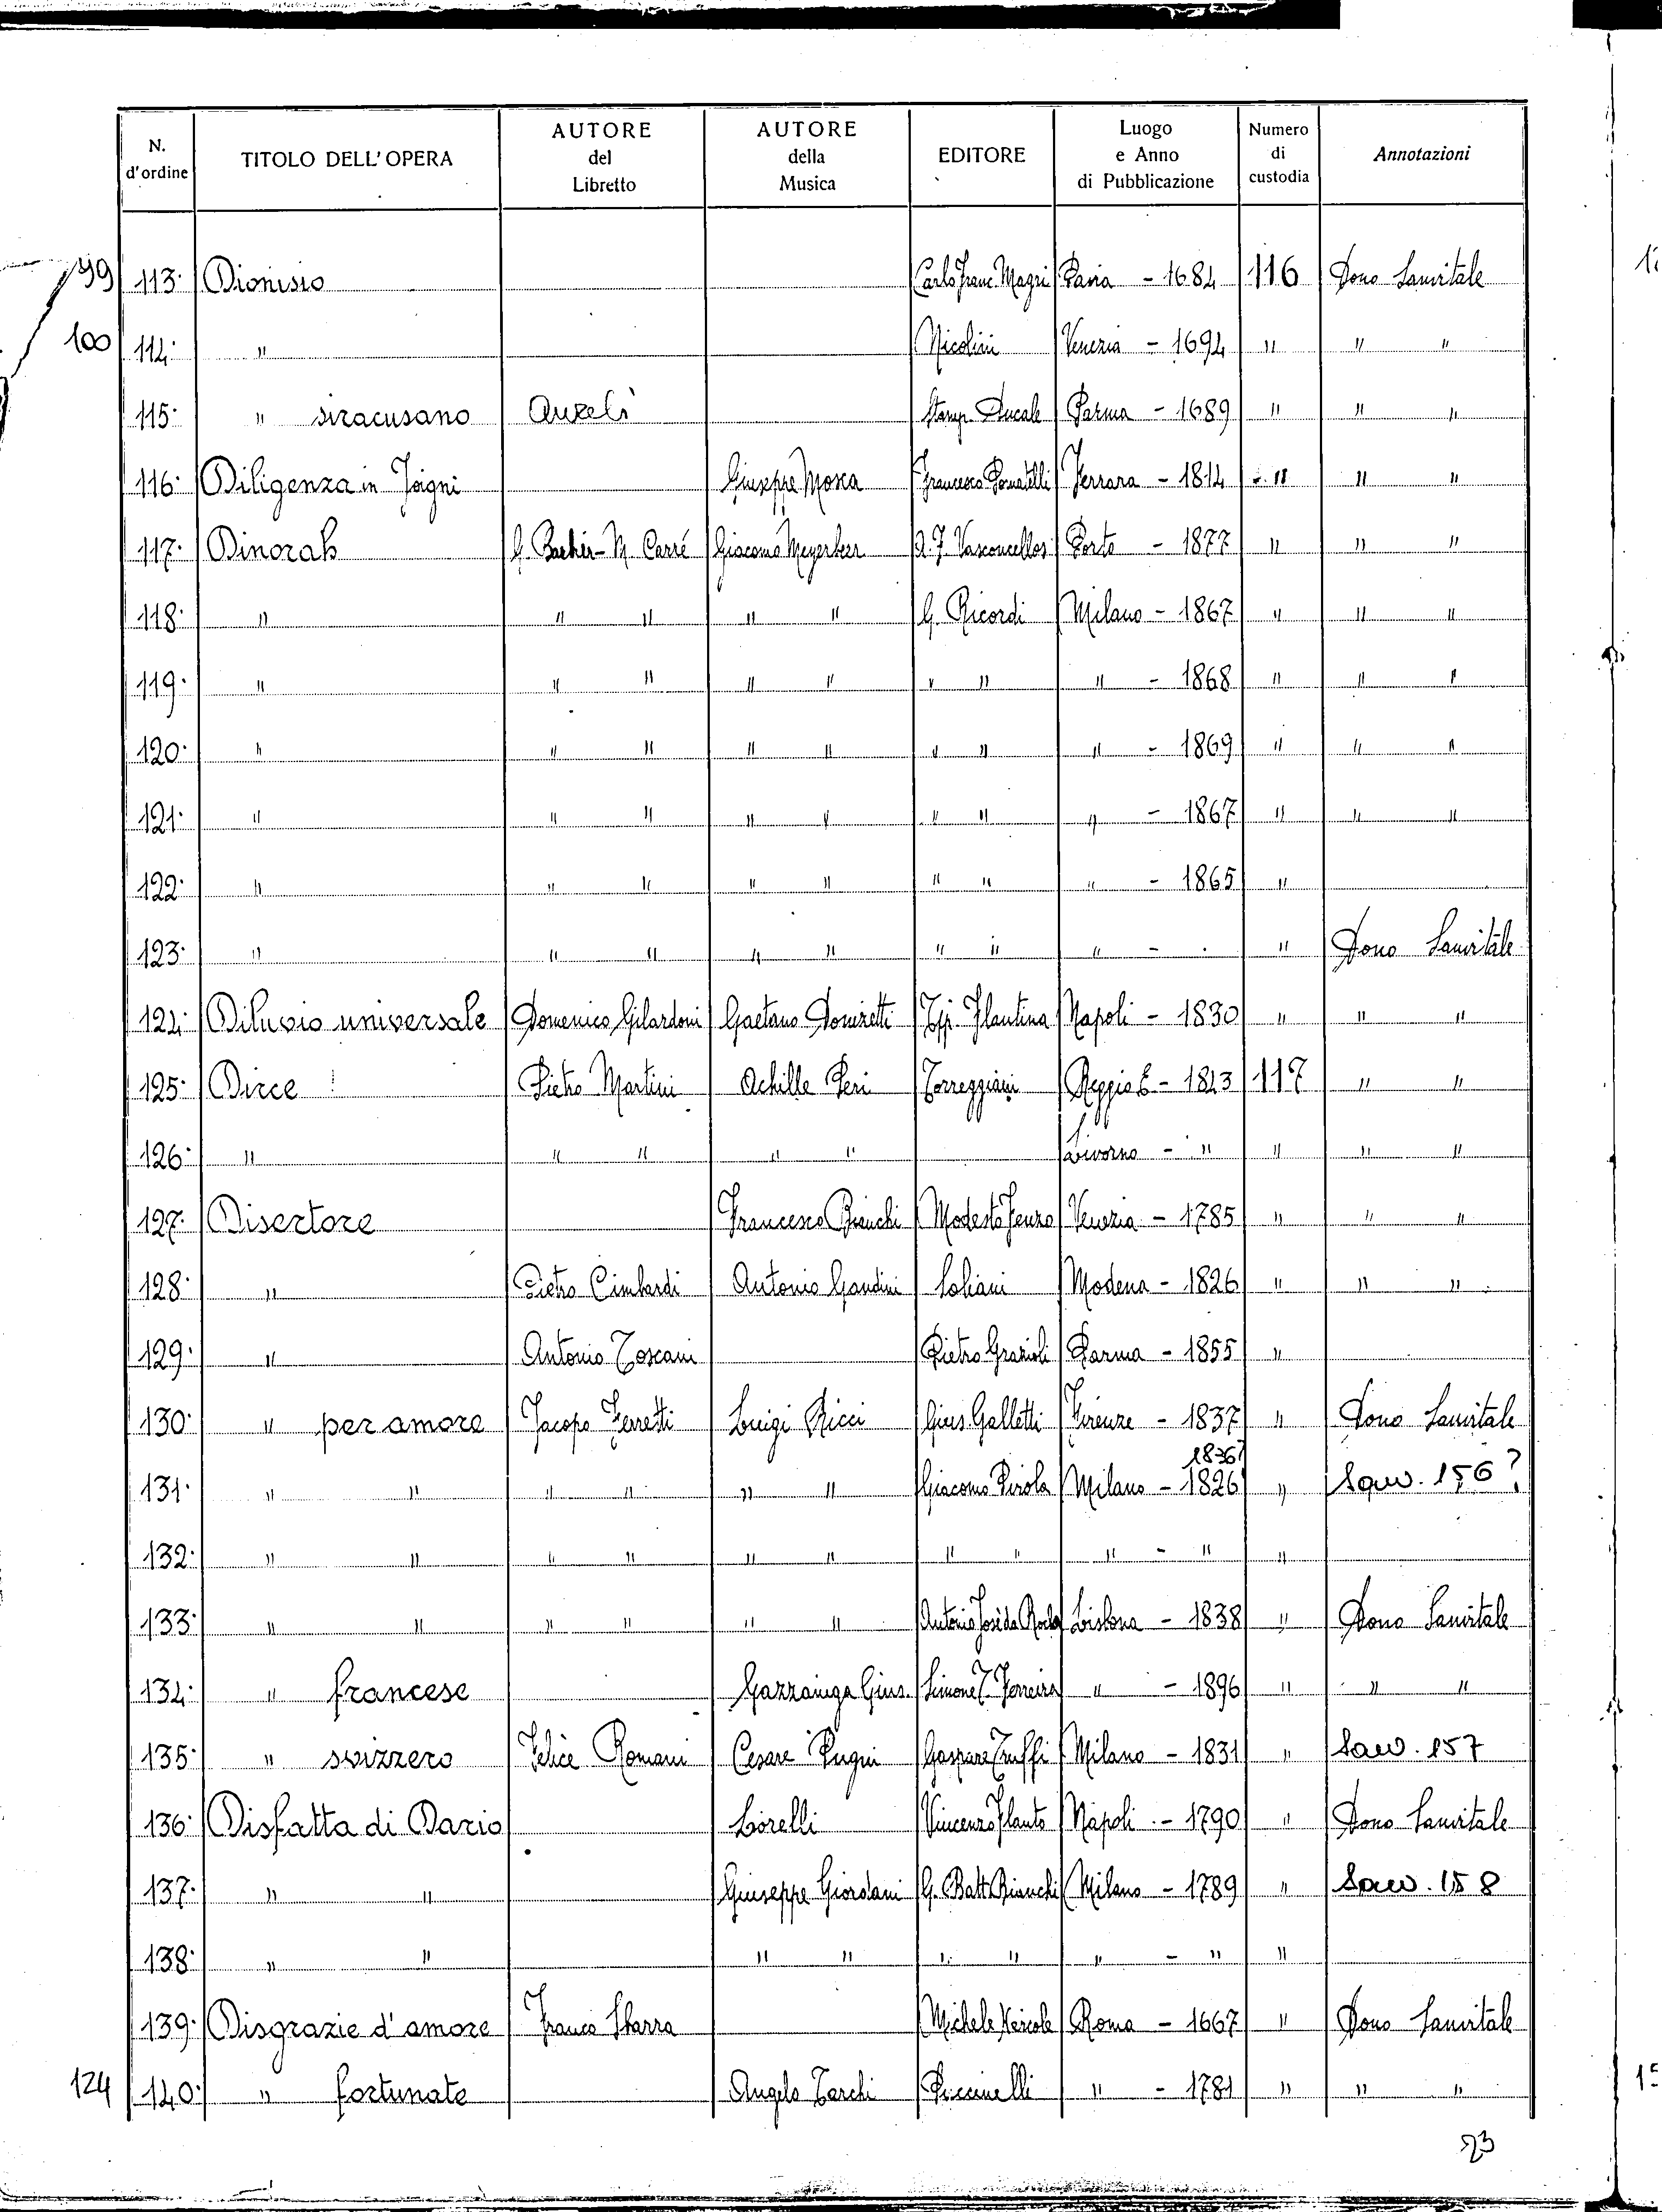 N. d'ordine | TITOLO DELL'OPERA | AUTORE del Libretto | AUTORE della Musica | EDITORE | Luogo e Anno di Pubblicazione | Numero di custodia | Annotazioni
99 113. Dionisio Carlo Franc. Magri Pavia - 1684 116 Dono Sanvitale
100 114. " Nicolini Venezia - 1694 " " "
115. " siracusano Aureli Stamp. Ducale Parma - 1689 " " "
116. Diligenza in Joigni Giuseppe Mosca Francesco Pomatelli Ferrara - 1814 " " "
117. Dinorah G. Barbier - M. Carré Giacomo Meyerbeer A. F. Vasconcellos Porto - 1877 " " "
118. " " " " " G. Ricordi Milano - 1867 " " "
119. " " " " " " " " - 1868 " " "
120. " " " " " " " " - 1869 " " "
121. " " " " " " " " - 1867 " " "
122. " " " " " " " " - 1865 "
123. " " " " " " " " - " Dono Sanvitale
124. Diluvio universale Domenico Gilardoni Gaetano Donizetti Tip. Flautina Napoli - 1830 " " "
125. Dirce Pietro Martini Achille Peri Torreggiani Reggio E - 1843 117 " "
126. " " " " " Livorno - " " " "
127. Disertore Francesco Bianchi Modesto Fenzo Venezia - 1785 " " "
128. " Pietro Cimbardi Antonio Gandini Soliani Modena - 1826 " " "
129. " Antonio Toscani Pietro Grazioli Parma - 1855 "
130. " per amore Jacopo Ferretti Luigi Ricci Gius. Galletti Firenze - 1837 " Dono Sanvitale
1836?
131. " " " " " " Giacomo Pirola Milano - 1826 " Sanv. 156?
132. " " " " " " " " " - " "
133. " " " " " " Antonio José da Rocha Lisbona - 1838 " Dono Sanvitale
134. " francese Gazzaniga Gius. Simone T. Ferreira " - 1896 " " "
135. " svizzero Felice Romani Cesare Pugni Gaspare Truffi Milano - 1831 " Sanv. 157
136. Disfatta di Dario Lorelli Vincenzo Flauto Napoli - 1790 " Dono Sanvitale
137. " " Giuseppe Giordani G. Batt. Bianchi Milano - 1789 " Sanv. 158
138. " " " " " " " - " "
139. Disgrazie d'amore Franco Sbarra Michele Hercole Roma - 1667 " Dono Sanvitale
124 140. " fortunate Angelo Tarchi Puccinelli " - 1781 " " "
23